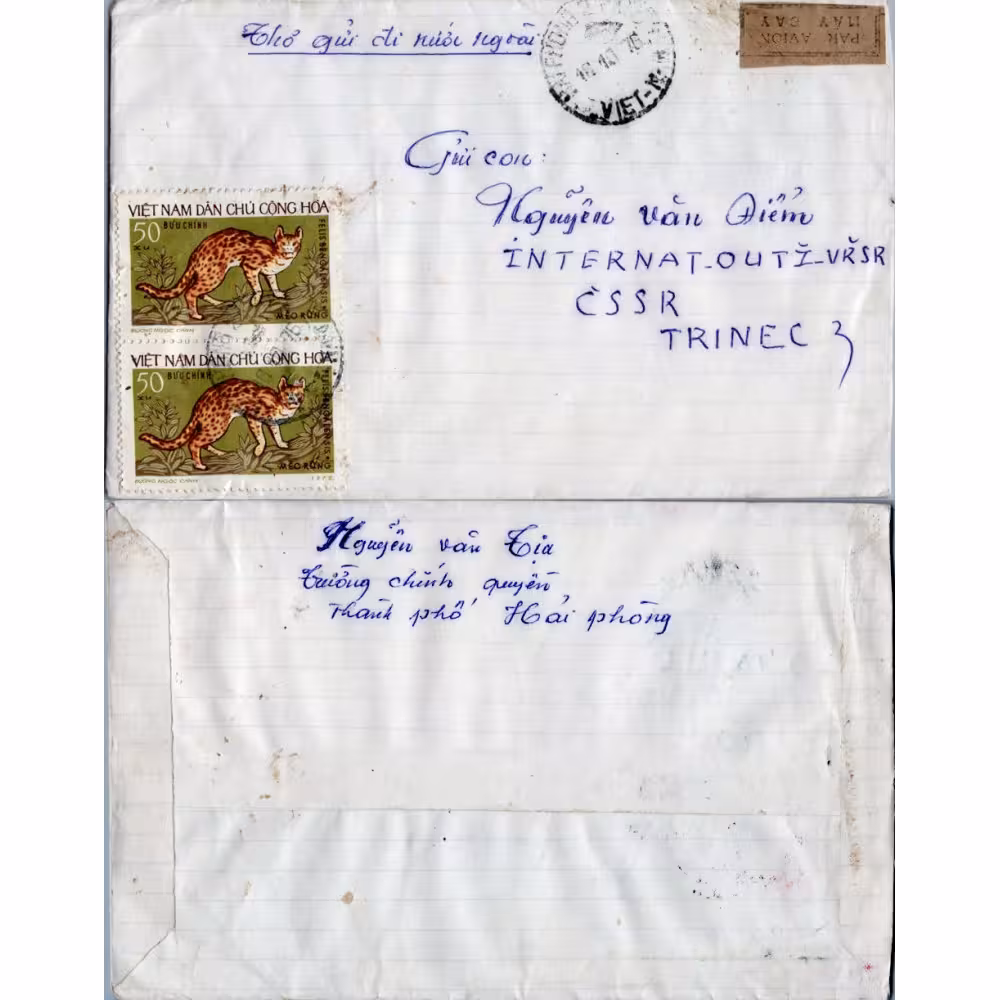 Thơ gửi đi nước ngoài
HẢI PHÒNG
18.10.76
VIET-N
PAR AVION
MÁY BAY
Gửi con:
Nguyễn văn Điểm
INTERNAT_OUTŽ_VŘSR
ČSSR
TRINEC 3
VIỆT NAM DÂN CHỦ CỘNG HÒA
50 BƯU CHÍNH
XU
FELIS BENGALENSIS
MÈO RỪNG
DUONG NGOC CANH
VIỆT NAM DÂN CHỦ CỘNG HÒA
50 BƯU CHÍNH
XU
FELIS BENGALENSIS
MÈO RỪNG
DUONG NGOC CANH 1972
Nguyễn văn Tịa
Trường chính quyền
Thành phố Hải phòng